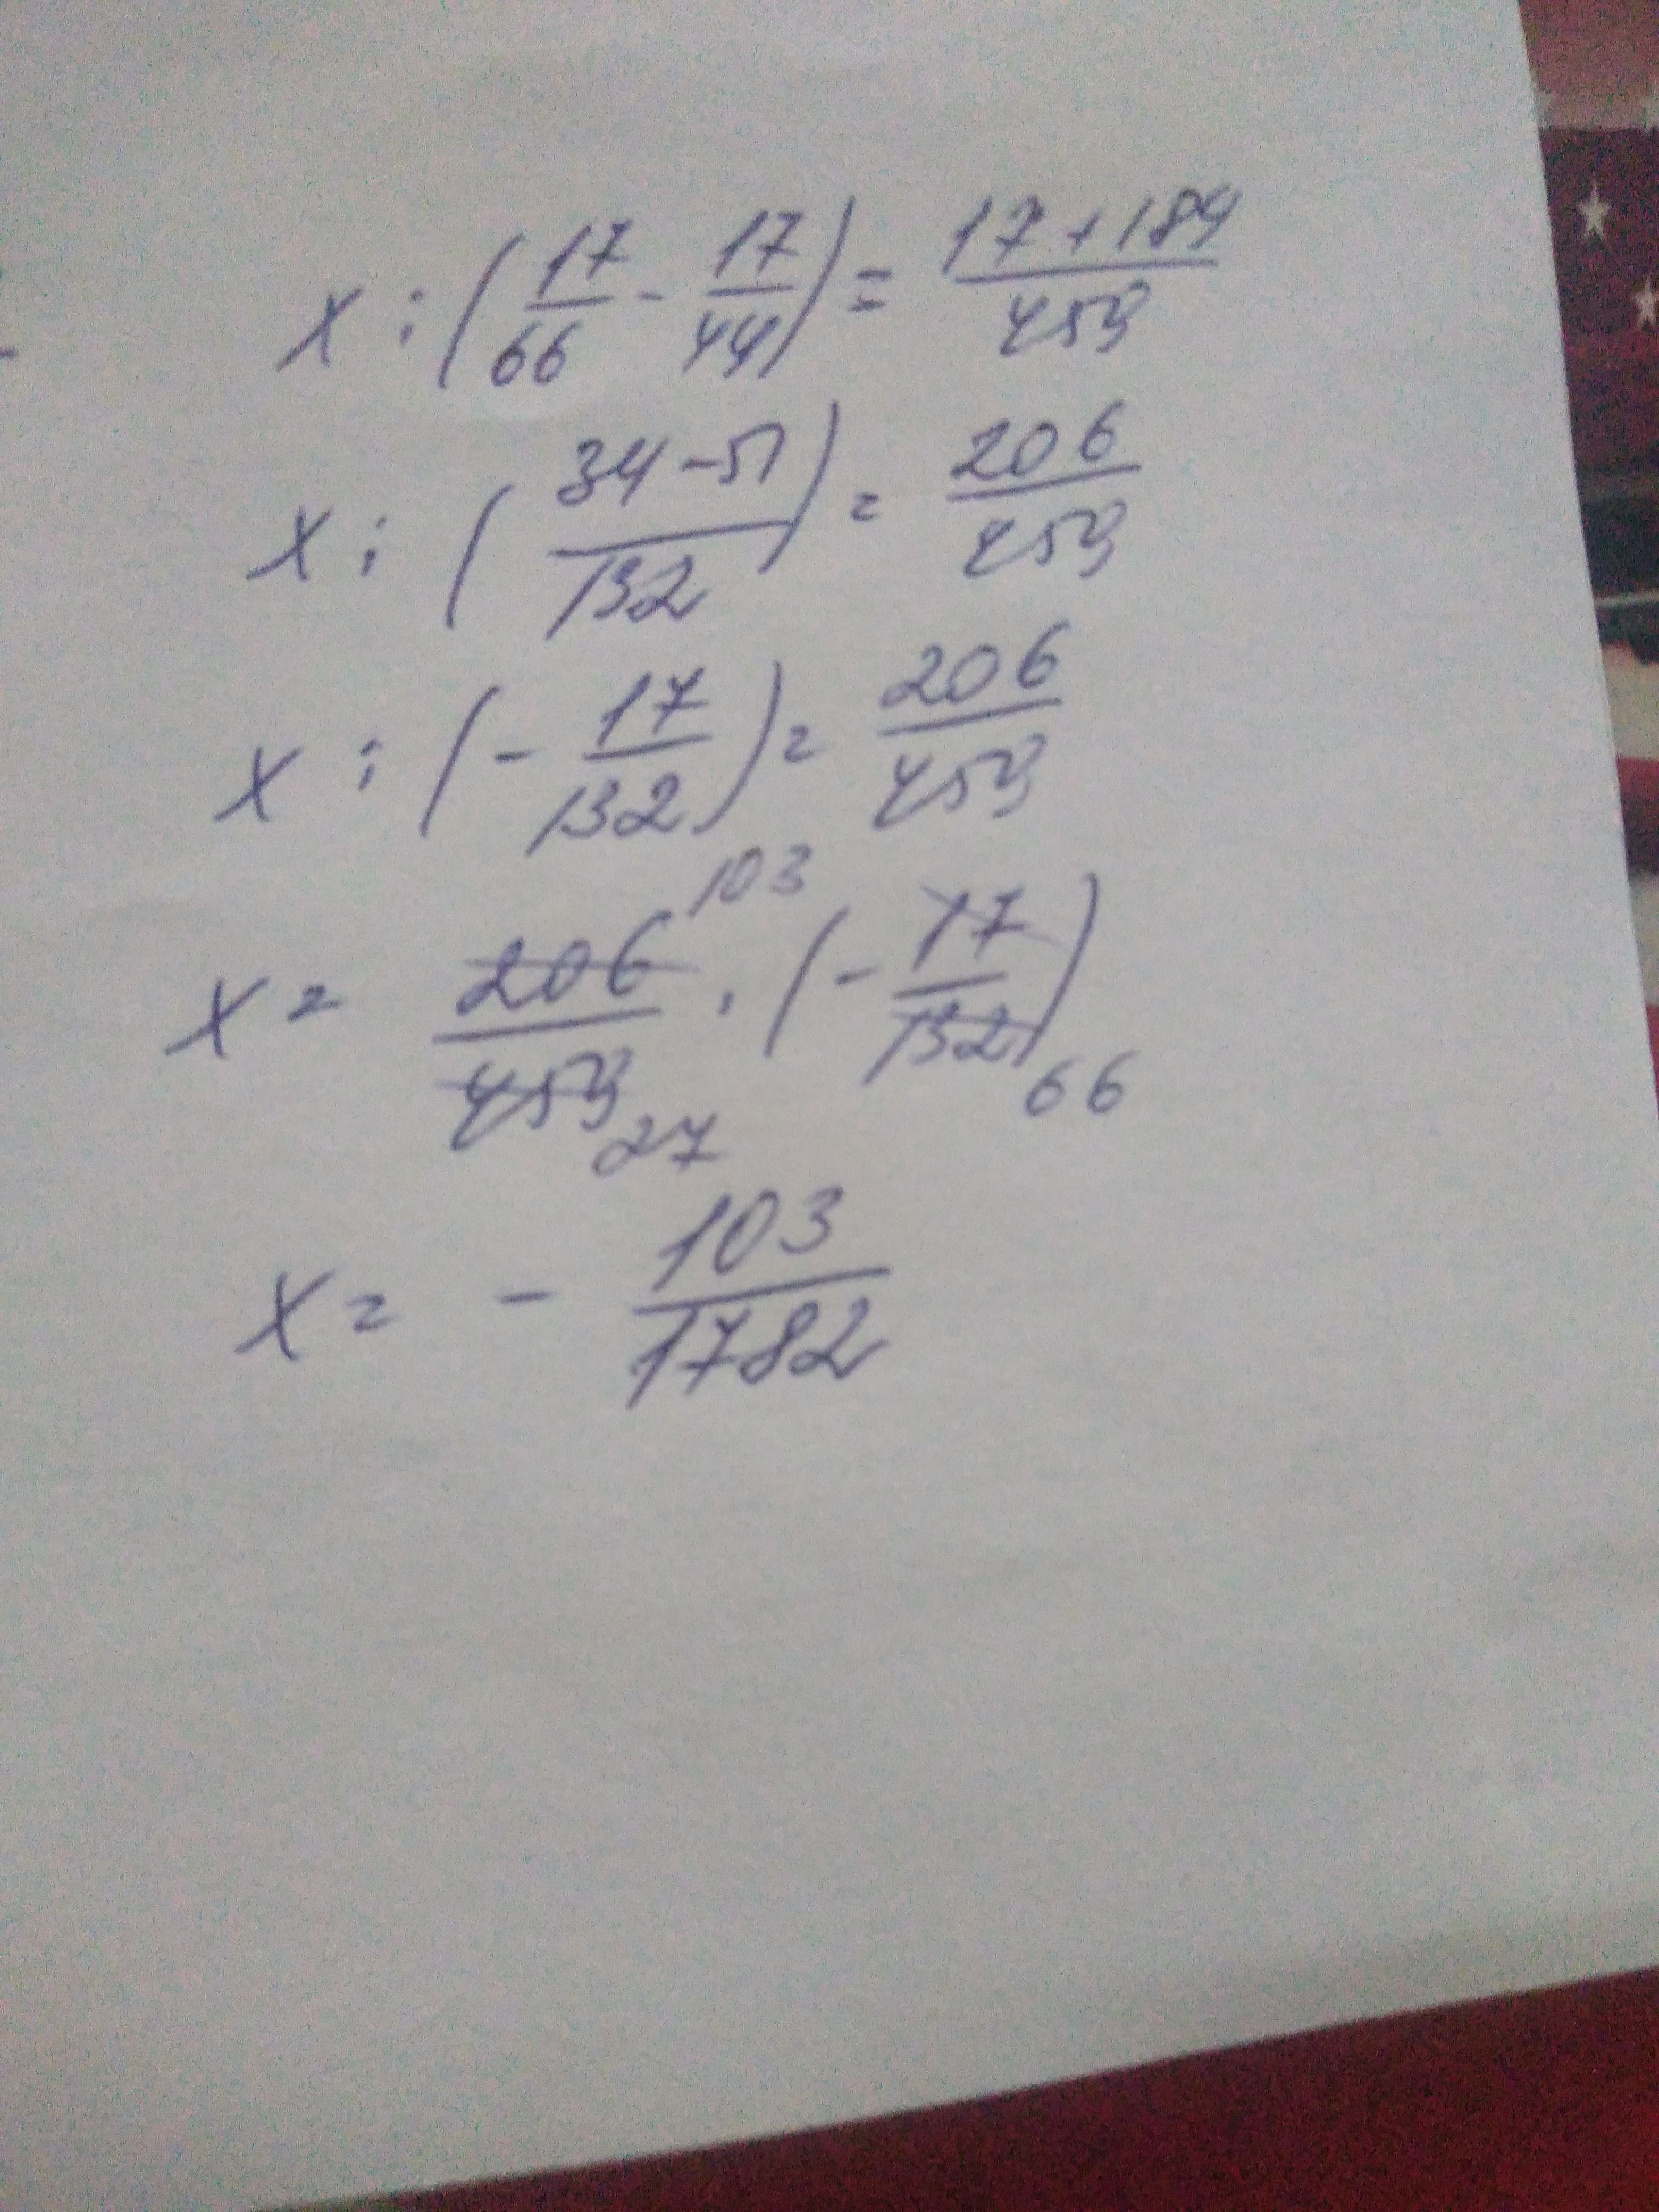 x : (17/66 - 17/44) = (17+189)/459
x : ((34-51)/132) = 206/459
x : (-17/132) = 206/459
103
x = 206/459 · (-17/132)
27 66
x = - 103/1782